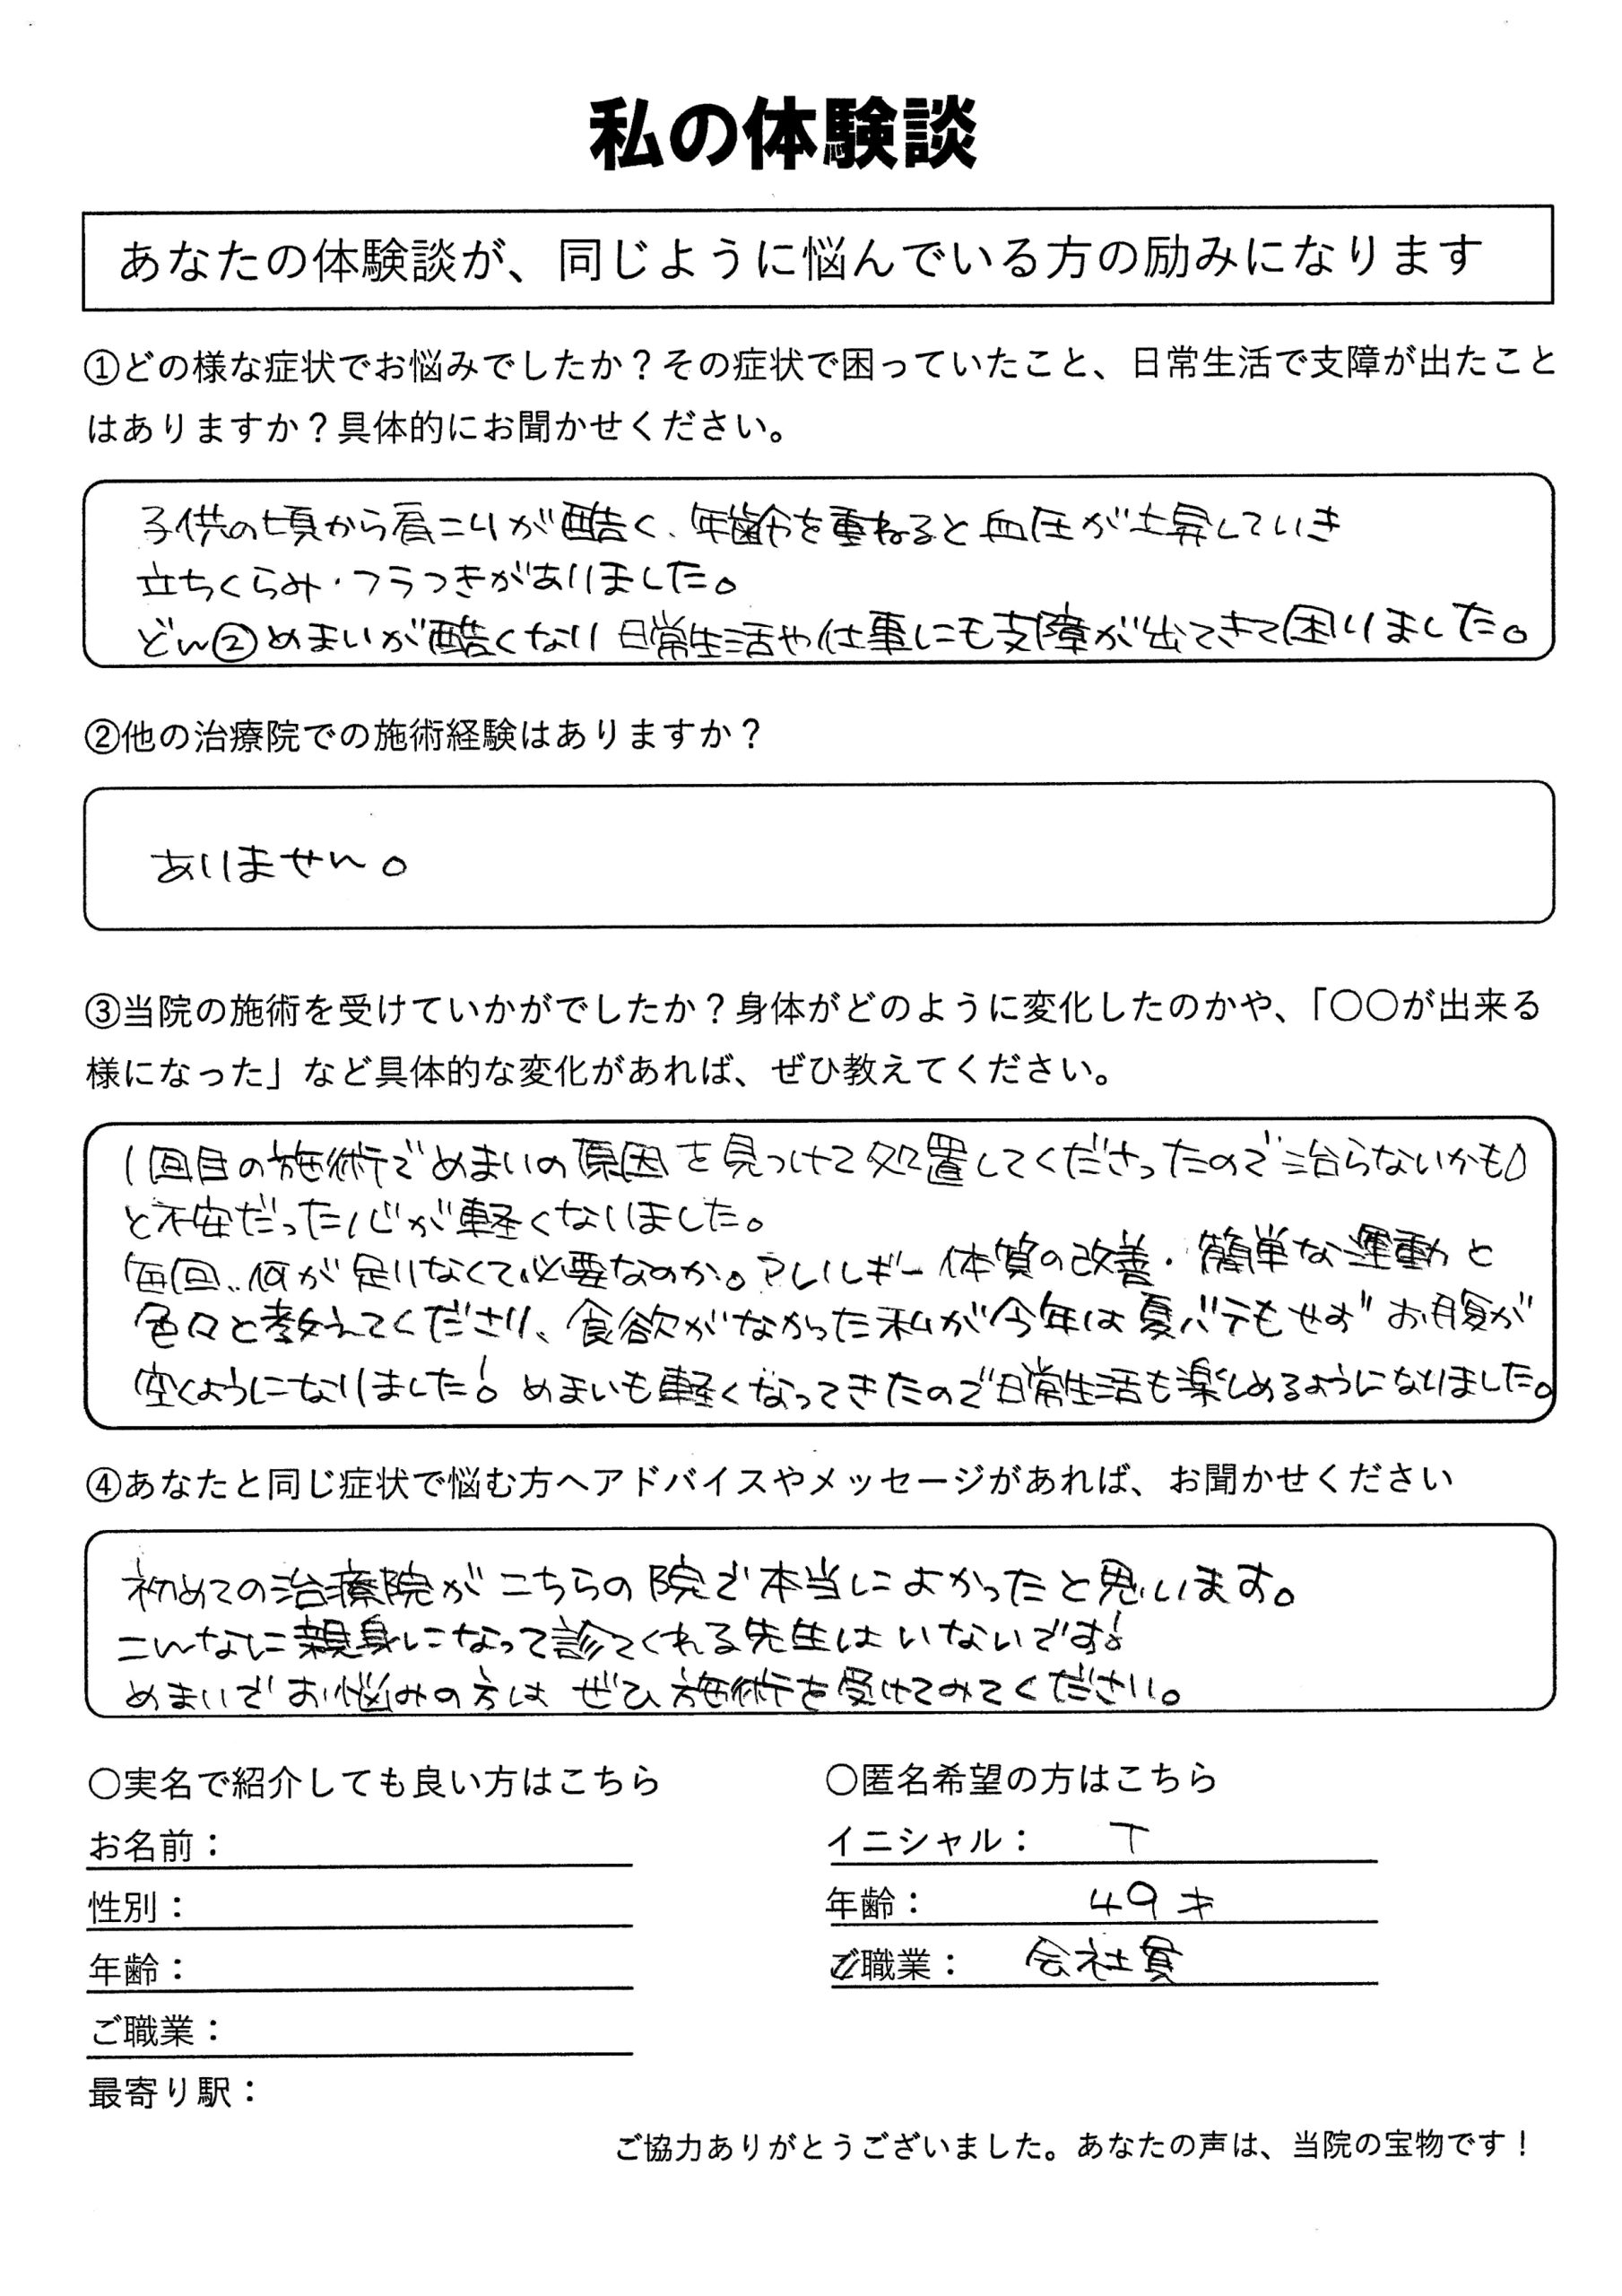 私の体験談
あなたの体験談が、同じように悩んでいる方の励みになります
①どの様な症状でお悩みでしたか？その症状で困っていたこと、日常生活で支障が出たこと
はありますか？具体的にお聞かせください。
子供の頃から肩こりが酷く、年齢を重ねると血圧が上昇していき
立ちくらみ・フラつきがありました。
どん②めまいが酷くなり日常生活や仕事にも支障が出てきて困りました。
②他の治療院での施術経験はありますか？
ありません。
③当院の施術を受けていかがでしたか？身体がどのように変化したのかや、「〇〇が出来る
様になった」など具体的な変化があれば、ぜひ教えてください。
1回目の施術でめまいの原因を見つけて処置してくださったので治らないかも
と不安だった心が軽くなりました。
毎回、何が足りなくて必要なのか。アレルギー体質の改善・簡単な運動と
色々と教えてくださり、食欲がなかった私が今年は夏バテもせずお腹が
空くようになりました！めまいも軽くなってきたので日常生活も楽しめるようになりました。
④あなたと同じ症状で悩む方へアドバイスやメッセージがあれば、お聞かせください
初めての治療院がこちらの院で本当によかったと思います。
こんなに親身になって診てくれる先生はいないです！
めまいでお悩みの方はぜひ施術を受けてみてください。
〇実名で紹介しても良い方はこちら
お名前：
性別：
年齢：
ご職業：
最寄り駅：
〇匿名希望の方はこちら
イニシャル： T
年齢： 49才
ご職業： 会社員
ご協力ありがとうございました。あなたの声は、当院の宝物です！